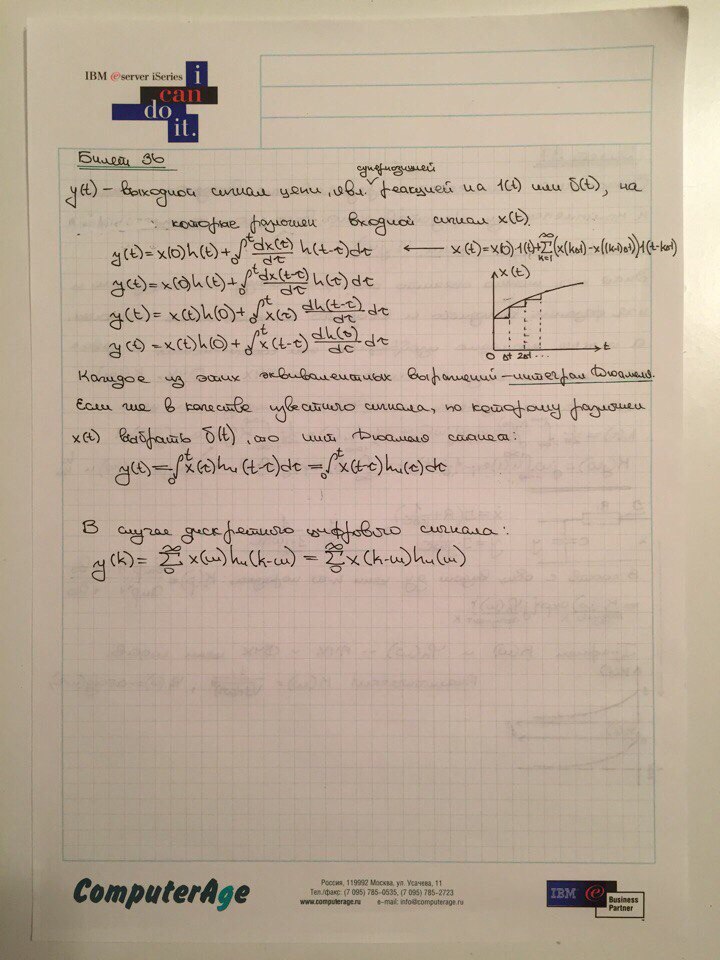 IBM eserver iSeries
i
can
do
it.
Билет 36
суперпозицией
y(t) – выходной сигнал цепи, явл. реакцией на 1(t) или δ(t), на
которые разложен входной сигнал x(t).
y(t) = x(0)h(t) + ₀∫ᵗ dx(τ)/dτ h(t-τ)dτ ← x(t) = x(0)·1(t) + ∑_{k=1}^{∞} (x(kΔt) - x((k-1)Δt))·1(t-kΔt)
y(t) = x(0)h(t) + ₀∫ᵗ dx(t-τ)/dτ h(τ)dτ
x(t)
y(t) = x(t)h(0) + ₀∫ᵗ x(τ) dh(t-τ)/dτ dτ
y(t) = x(t)h(0) + ₀∫ᵗ x(t-τ) dh(τ)/dτ dτ
0 Δt 2Δt ... t
Каждое из этих эквивалентных выражений – интеграл Дюамеля.
Если же в качестве известного сигнала, по которому разложен
x(t) выбрать δ(t), то инт Дюамеля станет:
y(t) = ₀∫ᵗ x(τ)hи(t-τ)dτ = ₀∫ᵗ x(t-τ)hи(τ)dτ
В случае дискретного цифрового сигнала:
y(k) = ∑₀^∞ x(m)hи(k-m) = ∑₀^∞ x(k-m)hи(m)
ComputerAge
Россия, 119992 Москва, ул. Усачева, 11
Тел./факс: (7 095) 785–0535, (7 095) 785–2723
www.computerage.ru e-mail: info@computerage.ru
IBM e
Business
Partner